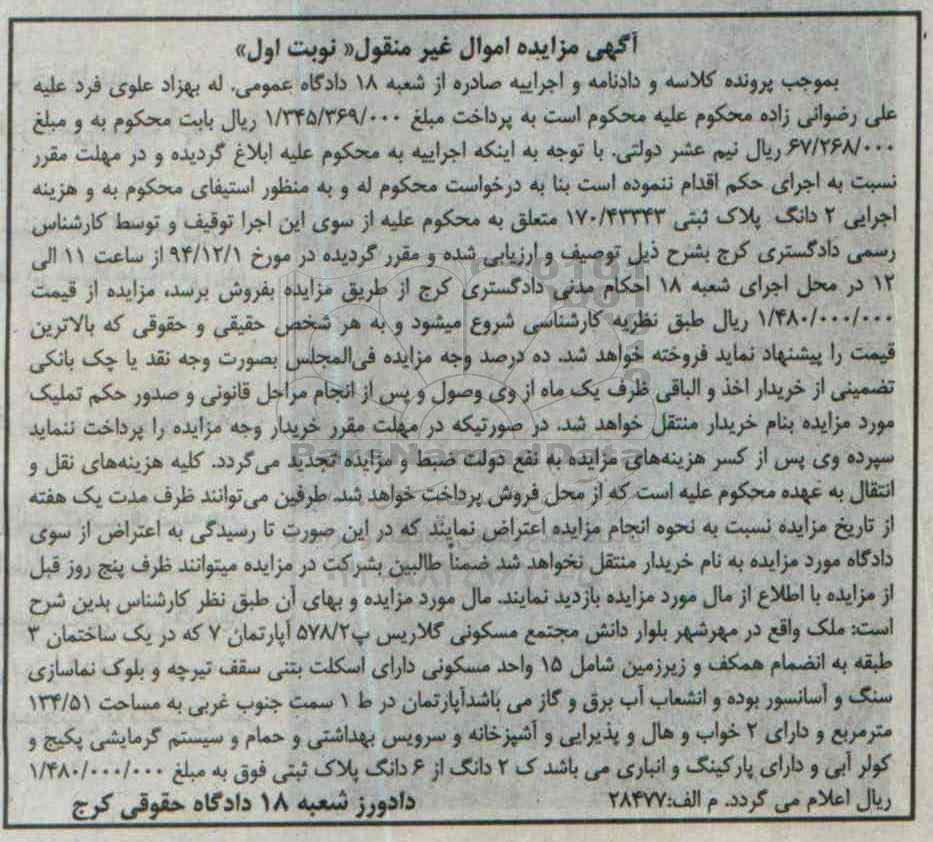 آگهی مزایده اموال غیر منقول« نوبت اول»
بموجب پرونده کلاسه و دادنامه و اجراییه صادره از شعبه ۱۸ دادگاه عمومی. له بهزاد علوی فرد علیه
علی رضوانی زاده محکوم علیه محکوم است به پرداخت مبلغ ۱/۳۴۵/۳۶۹/۰۰۰ ریال بابت محکوم به و مبلغ
۶۷/۲۶۸/۰۰۰ ریال نیم عشر دولتی. با توجه به اینکه اجراییه به محکوم علیه ابلاغ گردیده و در مهلت مقرر
نسبت به اجرای حکم اقدام ننموده است بنا به درخواست محکوم له و به منظور استیفای محکوم به و هزینه
اجرایی ۲ دانگ پلاک ثبتی ۱۷۰/۴۳۳۴۳ متعلق به محکوم علیه از سوی این اجرا توقیف و توسط کارشناس
رسمی دادگستری کرج بشرح ذیل توصیف و ارزیابی شده و مقرر گردیده در مورخ ۹۴/۱۲/۱ از ساعت ۱۱ الی
۱۲ در محل اجرای شعبه ۱۸ احکام مدنی دادگستری کرج از طریق مزایده بفروش برسد، مزایده از قیمت
۱/۴۸۰/۰۰۰/۰۰۰ ریال طبق نظریه کارشناسی شروع میشود و به هر شخص حقیقی و حقوقی که بالاترین
قیمت را پیشنهاد نماید فروخته خواهد شد. ده درصد وجه مزایده فی‌المجلس بصورت وجه نقد یا چک بانکی
تضمینی از خریدار اخذ و الباقی ظرف یک ماه از وی وصول و پس از انجام مراحل قانونی و صدور حکم تملیک
مورد مزایده بنام خریدار منتقل خواهد شد. در صورتیکه در مهلت مقرر خریدار وجه مزایده را پرداخت ننماید
سپرده وی پس از کسر هزینه‌های مزایده به نفع دولت ضبط و مزایده تجدید می‌گردد. کلیه هزینه‌های نقل و
انتقال به عهده محکوم علیه است که از محل فروش پرداخت خواهد شد. طرفین می‌توانند ظرف مدت یک هفته
از تاریخ مزایده نسبت به نحوه انجام مزایده اعتراض نمایند که در این صورت تا رسیدگی به اعتراض از سوی
دادگاه مورد مزایده به نام خریدار منتقل نخواهد شد ضمناً طالبین بشرکت در مزایده میتوانند ظرف پنج روز قبل
از مزایده با اطلاع از مال مورد مزایده بازدید نمایند. مال مورد مزایده و بهای آن طبق نظر کارشناس بدین شرح
است: ملک واقع در مهرشهر بلوار دانش مجتمع مسکونی گلاریس پ۵۷۸/۲ آپارتمان ۷ که در یک ساختمان ۳
طبقه به انضمام همکف و زیرزمین شامل ۱۵ واحد مسکونی دارای اسکلت بتنی سقف تیرچه و بلوک نماسازی
سنگ و آسانسور بوده و انشعاب آب برق و گاز می باشدآپارتمان در ط ۱ سمت جنوب غربی به مساحت ۱۳۴/۵۱
مترمربع و دارای ۲ خواب و هال و پذیرایی و آشپزخانه و سرویس بهداشتی و حمام و سیستم گرمایشی پکیج و
کولر آبی و دارای پارکینگ و انباری می باشد ک ۲ دانگ از ۶ دانگ پلاک ثبتی فوق به مبلغ ۱/۴۸۰/۰۰۰/۰۰۰
ریال اعلام می گردد. م الف:۲۸۴۷۷
دادورز شعبه ۱۸ دادگاه حقوقی کرج
ParsNamadData